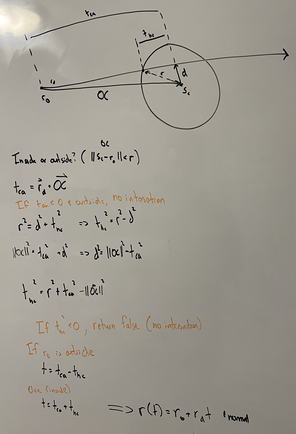 t_ca
t_hc
r
d
r_o
OC
S_c
OC
Inside or outside? ( ||S_c - r_o|| < r )
t_ca = r_d • OC
If t_ca < 0 & outside, no intersection
r² = d² + t_hc² ⇒ t_hc² = r² - d²
||OC||² = t_ca² + d² ⇒ d² = ||OC||² - t_ca²
t_hc² = r² + t_ca² - ||OC||²
If t_hc² < 0, return false (no intersection)
If r_o is outside
t = t_ca - t_hc
(inside)
t = t_ca + t_hc ⇒ r(t) = r_o + r_d t